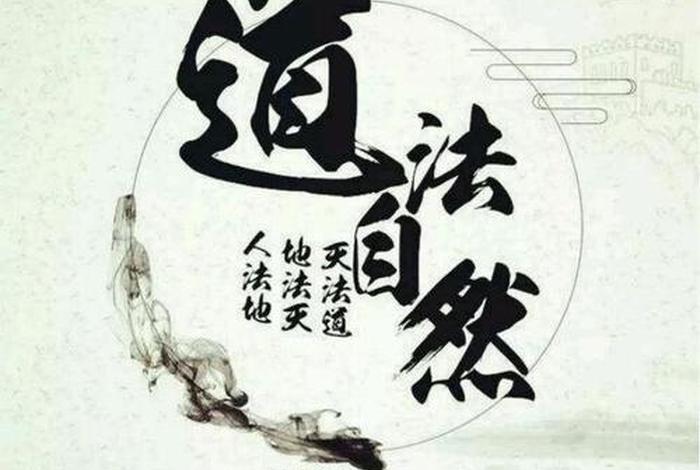 道法自然
人法地
地法天
天法道